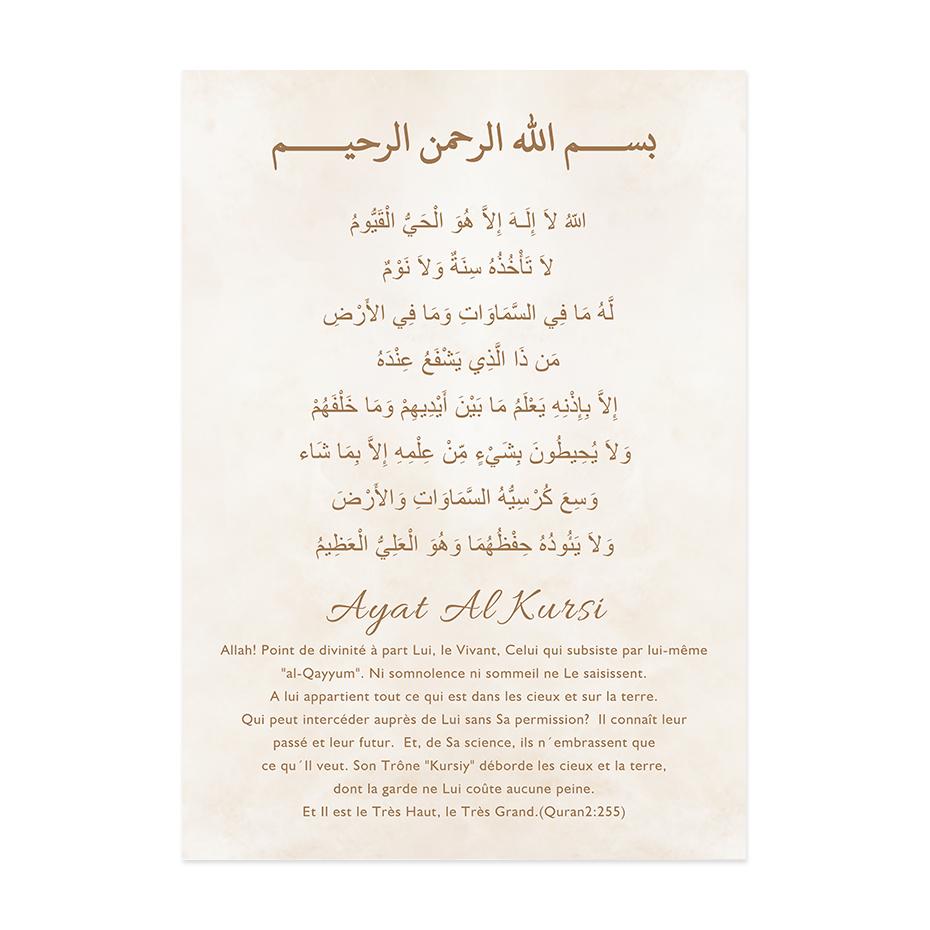 بسم الله الرحمن الرحيم
اللّهُ لاَ إِلَـهَ إِلاَّ هُوَ الْحَيُّ الْقَيُّومُ
لاَ تَأْخُذُهُ سِنَةٌ وَلاَ نَوْمٌ
لَّهُ مَا فِي السَّمَاوَاتِ وَمَا فِي الأَرْضِ
مَن ذَا الَّذِي يَشْفَعُ عِنْدَهُ
إِلاَّ بِإِذْنِهِ يَعْلَمُ مَا بَيْنَ أَيْدِيهِمْ وَمَا خَلْفَهُمْ
وَلاَ يُحِيطُونَ بِشَيْءٍ مِّنْ عِلْمِهِ إِلاَّ بِمَا شَاء
وَسِعَ كُرْسِيُّهُ السَّمَاوَاتِ وَالأَرْضَ
وَلاَ يَئُودُهُ حِفْظُهُمَا وَهُوَ الْعَلِيُّ الْعَظِيمُ
Ayat Al Kursi
Allah! Point de divinité à part Lui, le Vivant, Celui qui subsiste par lui-même
"al-Qayyum". Ni somnolence ni sommeil ne Le saisissent.
A lui appartient tout ce qui est dans les cieux et sur la terre.
Qui peut intercéder auprès de Lui sans Sa permission?  Il connaît leur
passé et leur futur.  Et, de Sa science, ils n´embrassent que
ce qu´Il veut. Son Trône "Kursiy" déborde les cieux et la terre,
dont la garde ne Lui coûte aucune peine.
Et Il est le Très Haut, le Très Grand.(Quran2:255)